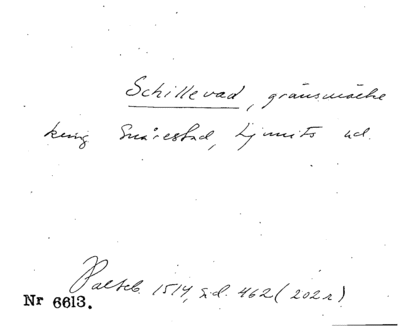 Schillevad, gränsmärke
kring Snårestad, Ljunits hd.
Palteb. 1514, s.d. 462 (202r)
Nr 6613.